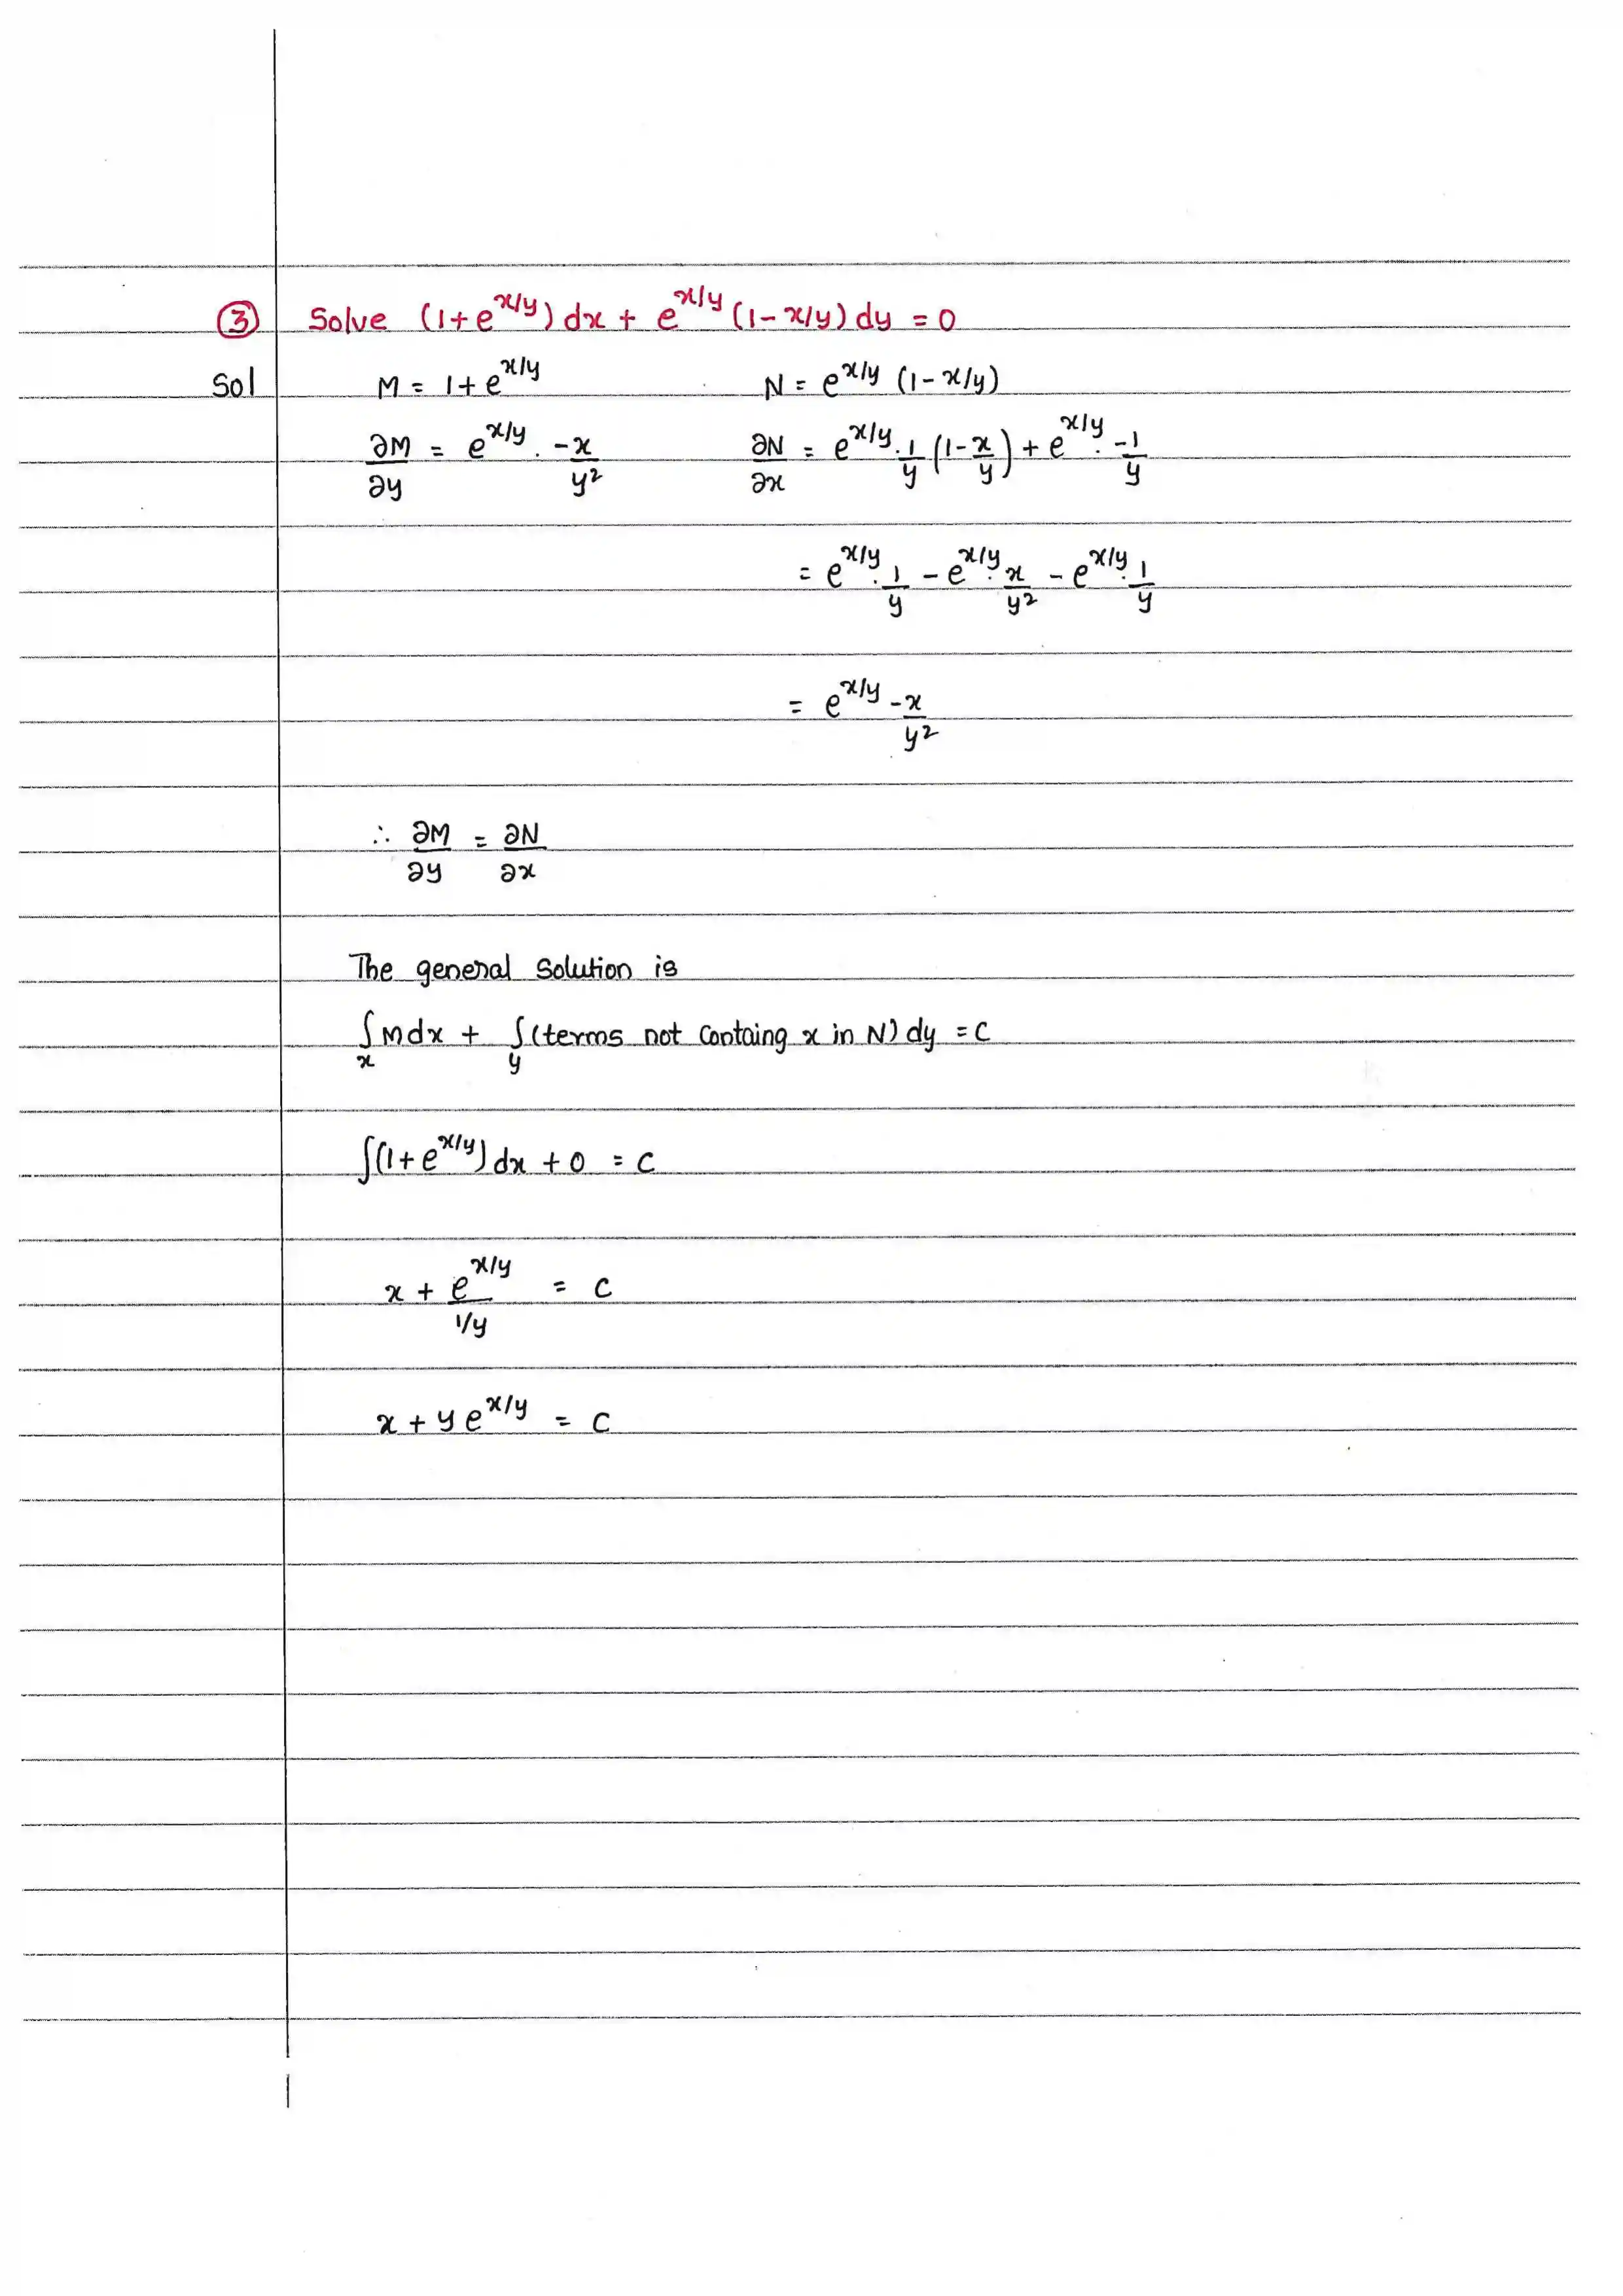 ③ Solve (1+e^{x/y}) dx + e^{x/y} (1-x/y) dy = 0
Sol M = 1+e^{x/y} N = e^{x/y} (1-x/y)
∂M/∂y = e^{x/y} . -x/y² ∂N/∂x = e^{x/y} . 1/y (1-x/y) + e^{x/y} . -1/y
= e^{x/y} . 1/y - e^{x/y} . x/y² - e^{x/y} . 1/y
= e^{x/y} -x/y²
∴ ∂M/∂y = ∂N/∂x
The general Solution is
∫_x M dx + ∫_y (terms not Containg x in N) dy = C
∫(1+e^{x/y}) dx + 0 = C
x + e^{x/y}/(1/y) = C
x + y e^{x/y} = C